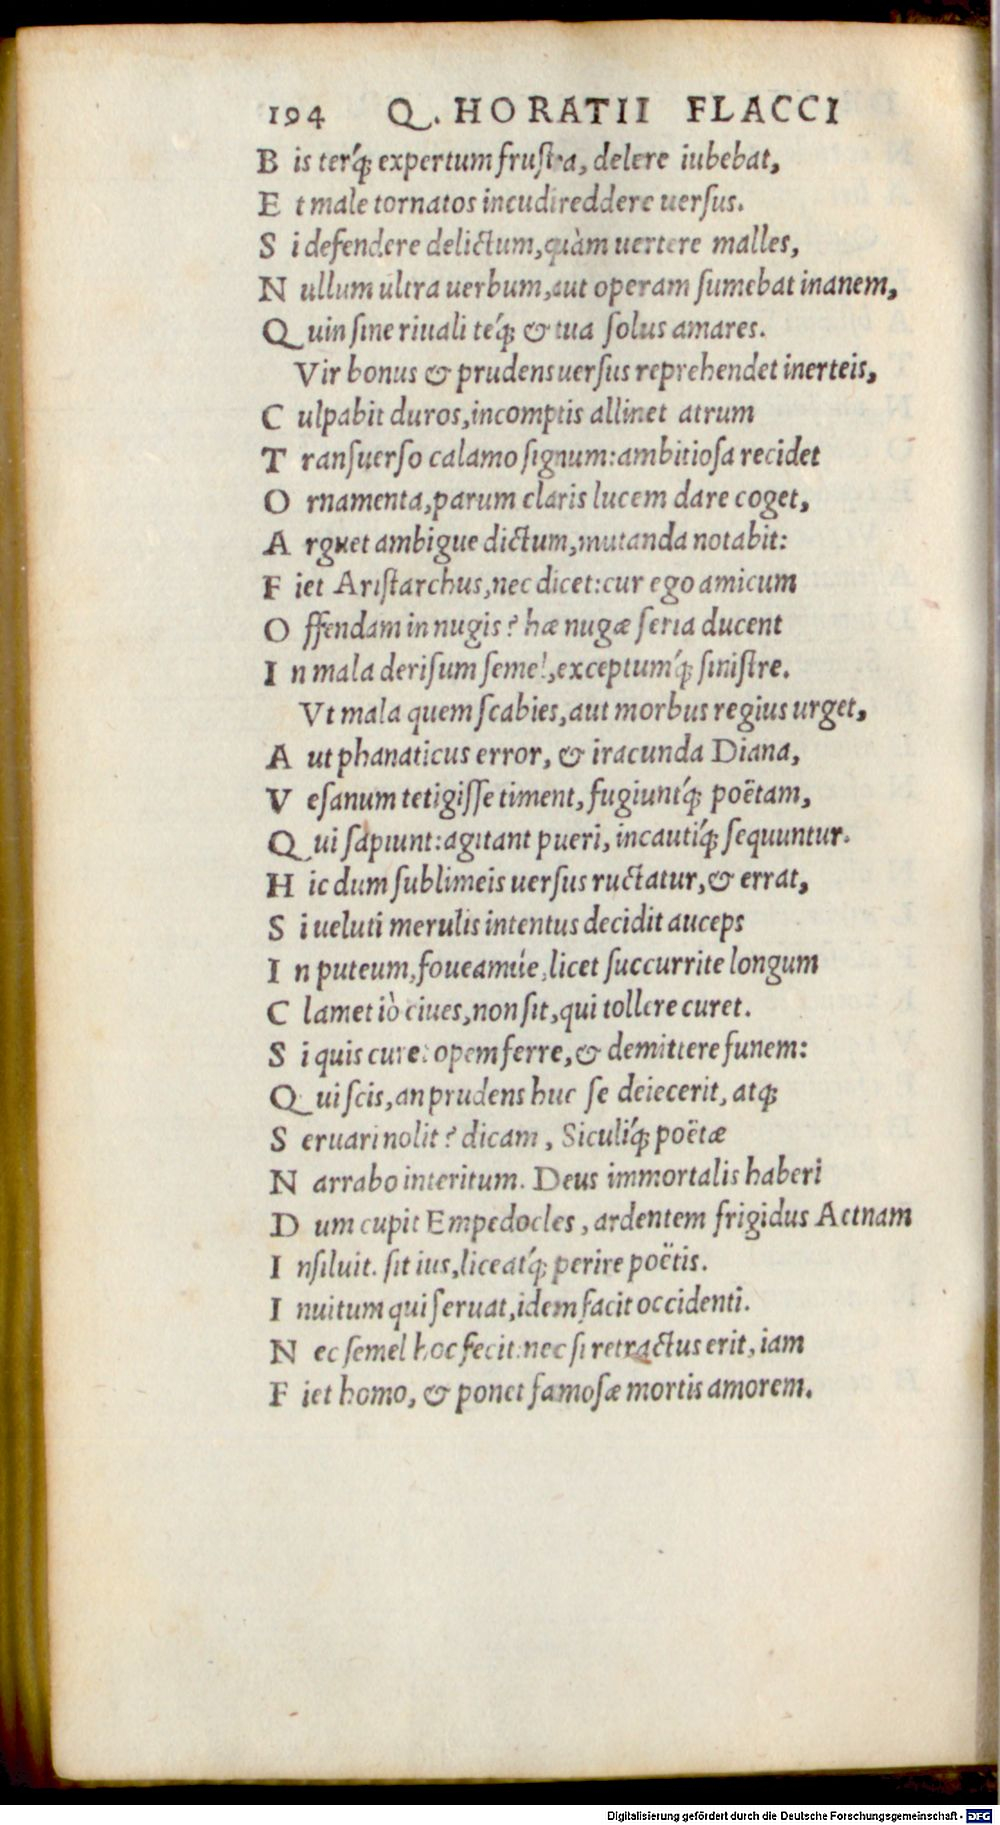 194 Q. HORATII FLACCI
B is terq́; expertum frustra, delere iubebat,
E t male tornatos incudi reddere uersus.
S i defendere delictum, quàm uertere malles,
N ullum ultra uerbum, aut operam sumebat inanem,
Q uin sine riuali teq́; & tua solus amares.
Vir bonus & prudens uersus reprehendet inerteis,
C ulpabit duros, incomptis allinet atrum
T ransuerso calamo signum: ambitiosa recidet
O rnamenta, parum claris lucem dare coget,
A rguet ambigue dictum, mutanda notabit:
F iet Aristarchus, nec dicet: cur ego amicum
O ffendam in nugis? hæ nugæ seria ducent
I n mala derisum semel, exceptumq́; sinistre.
Vt mala quem scabies, aut morbus regius urget,
A ut phanaticus error, & iracunda Diana,
V esanum tetigisse timent, fugiuntq́; poëtam,
Q ui sapiunt: agitant pueri, incautiq́; sequuntur.
H ic dum sublimeis uersus ructatur, & errat,
S i ueluti merulis intentus decidit auceps
I n puteum, foueamúe, licet succurrite longum
C lamet iò ciues, non sit, qui tollere curet.
S i quis curet opem ferre, & demittere funem:
Q ui scis, an prudens huc se deiecerit, atq;
S eruari nolit? dicam, Siculiq́; poëtæ
N arrabo interitum. Deus immortalis haberi
D um cupit Empedocles, ardentem frigidus Aetnam
I nsiluit. sit ius, liceatq́; perire poëtis.
I nuitum qui seruat, idem facit occidenti.
N ec semel hoc fecit: nec si retractus erit, iam
F iet homo, & ponet famosæ mortis amorem.
Digitalisierung gefördert durch die Deutsche Forschungsgemeinschaft - DFG